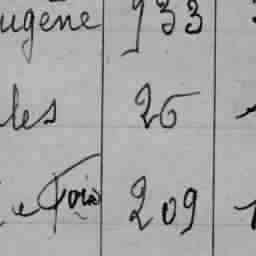 ugène 933
les 26
Fois 209